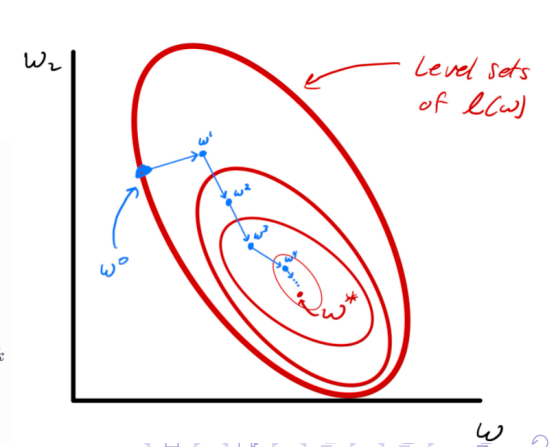 w₂
Level sets
of ℓ(w)
w¹
w²
w⁰
w³
w⁴
...
w*
w